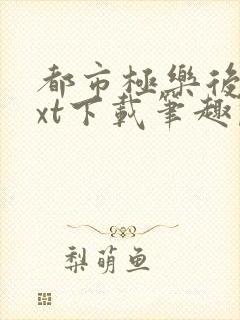 都市極樂後
xt下載筆趣
梨萌鱼